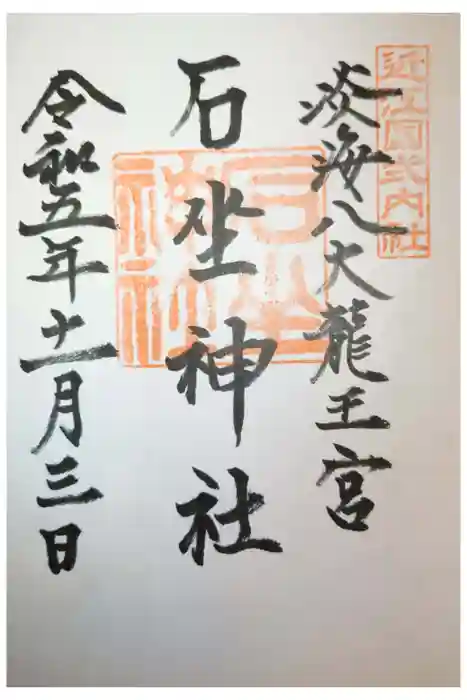 近江國式内社
淡海八大龍王宮
石坐神社
石坐神社
令和五年十一月三日